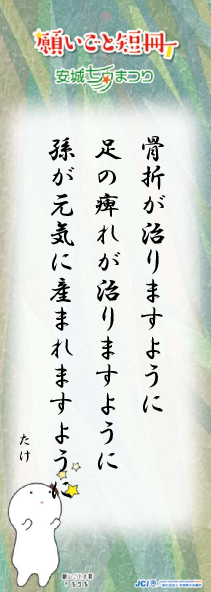 願いごと短冊
安城七夕まつり
骨折が治りますように
足の痺れが治りますように
孫が元気に産まれますように
たけ
JCI